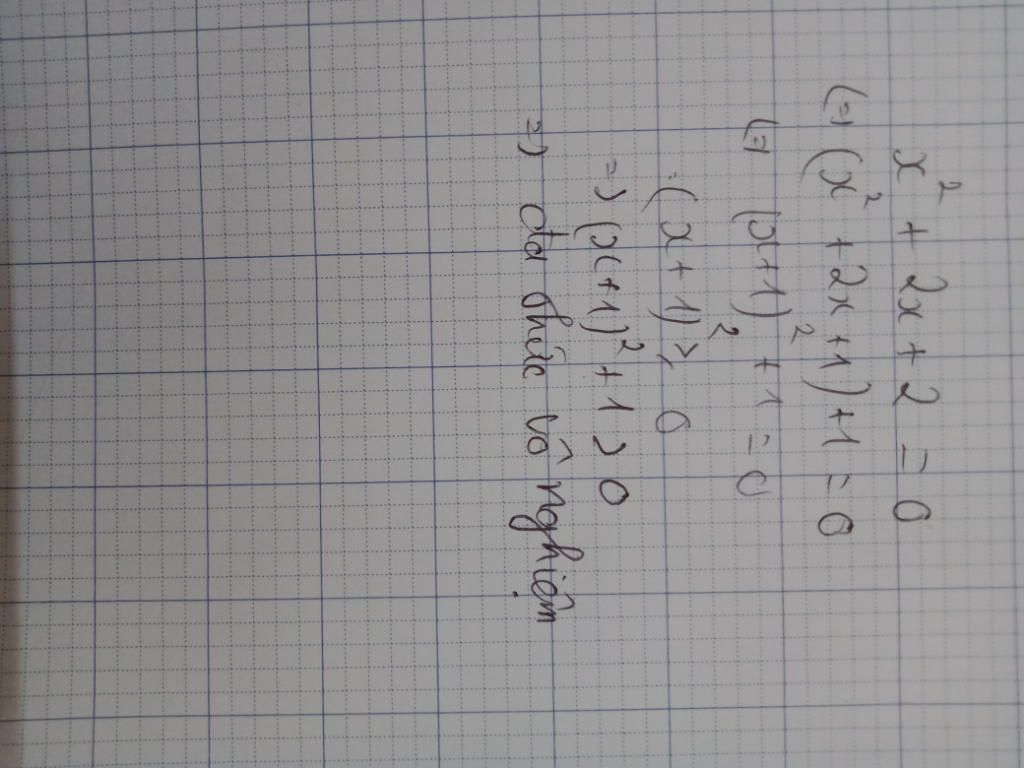 x² + 2x + 2 = 0
(=) (x² + 2x + 1) + 1 = 0
(=) (x+1)² + 1 = 0
(x+1)² ≥ 0
=) (x+1)² + 1 > 0
=) đa thức vô nghiệm